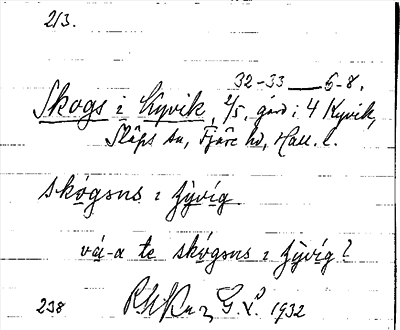 213.
32-33 — 6-8.
Skogs i Kyvik, 2/5, gård i 4 Kyvik,
Släps sn, Fjäre hd, Hall. l.
skógsns i jỳvíg
vá-a te skógsns i jỳvíg?
238 G. L. 1932